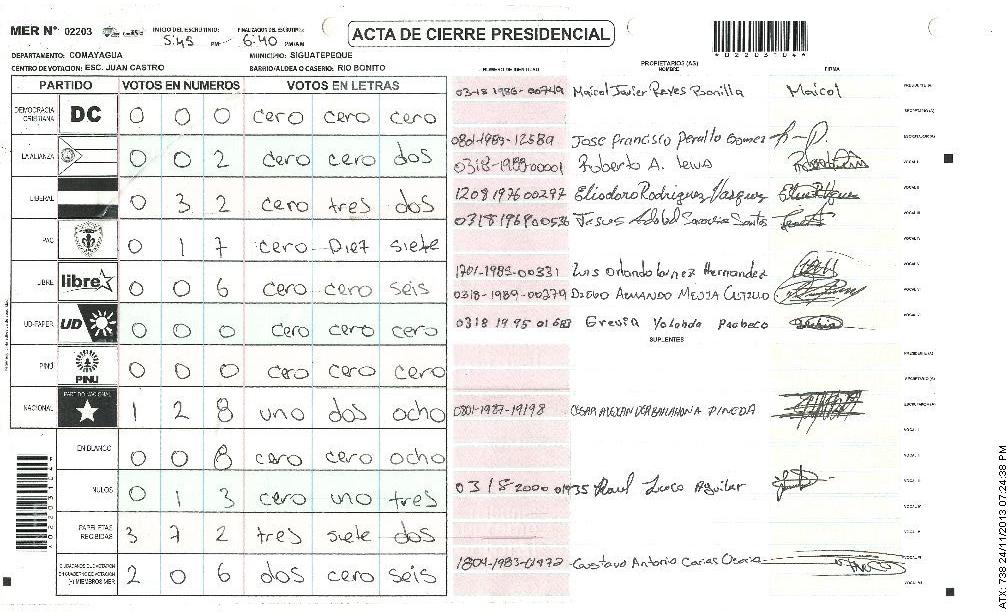 MER Nº 02203
INICIO DEL ESCRUTINIO: 5:45 PM
FINALIZACION DEL ESCRUTINIO: 6:40 PM/AM
ACTA DE CIERRE PRESIDENCIAL
DEPARTAMENTO: COMAYAGUA MUNICIPIO: SIGUATEPEQUE
CENTRO DE VOTACION: ESC. JUAN CASTRO BARRIO/ALDEA O CASERIO: RIO BONITO
PARTIDO VOTOS EN NUMEROS VOTOS EN LETRAS
NUMERO DE IDENTIDAD PROPIETARIOS (AS) NOMBRE FIRMA
DEMOCRACIA CRISTIANA DC 0 0 0 cero cero cero
LA ALIANZA 0 0 2 cero cero dos
LIBERAL 0 3 2 cero tres dos
PAC 0 1 7 cero Diez siete
LIBRE libre 0 0 6 cero cero seis
UD-FAPER UD 0 0 0 cero cero cero
PINU PINU 0 0 0 cero cero cero
NACIONAL PARTIDO NACIONAL 1 2 8 uno dos ocho
EN BLANCO 0 0 8 cero cero ocho
NULOS 0 1 3 cero uno tres
PAPELETAS RECIBIDAS 3 7 2 tres siete dos
2 0 6 dos cero seis
0318-1986-00749 Maicol Javier Reyes Bonilla Maicol
0801-1983-12589 Jose Francisco Peralta Gomez
0318-1983-00001 Roberto A.
1208 1976 00297 Eliodoro Rodriguez Vasquez
0318 1969 00536 Jesus Santos
1201-1983-00331 Luis Orlando Hernandez
0318-1989-00279 DIEGO ARMANDO MEJIA CASTILLO
0318 1995 01683 Yolanda Pacheco
SUPLENTES
0801-1987-19198 CESAR PINEDA
0318 2000 01935 Raul Aguilar
1804-1983-01972 Gustavo Antonio Carias
ATX: 738 24/11/2013 07:24:38 PM